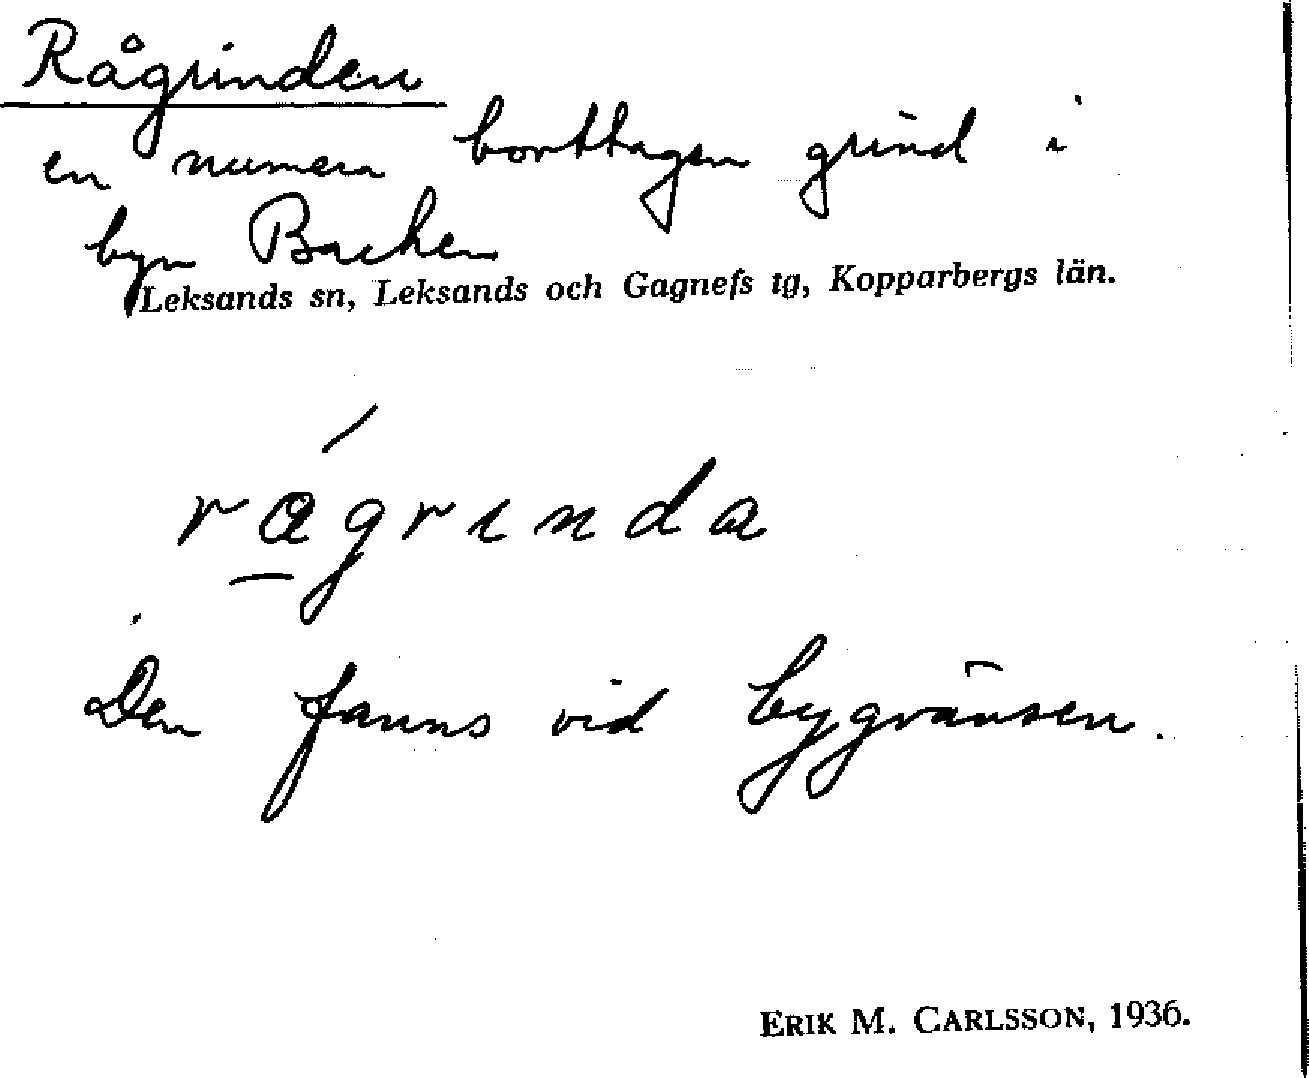 Rågrinden
en numera borttagen grind i
byn Backen
Leksands sn, Leksands och Gagnefs tg, Kopparbergs län.
rágrinda
Den fanns vid bygränsen.
ERIK M. CARLSSON, 1936.